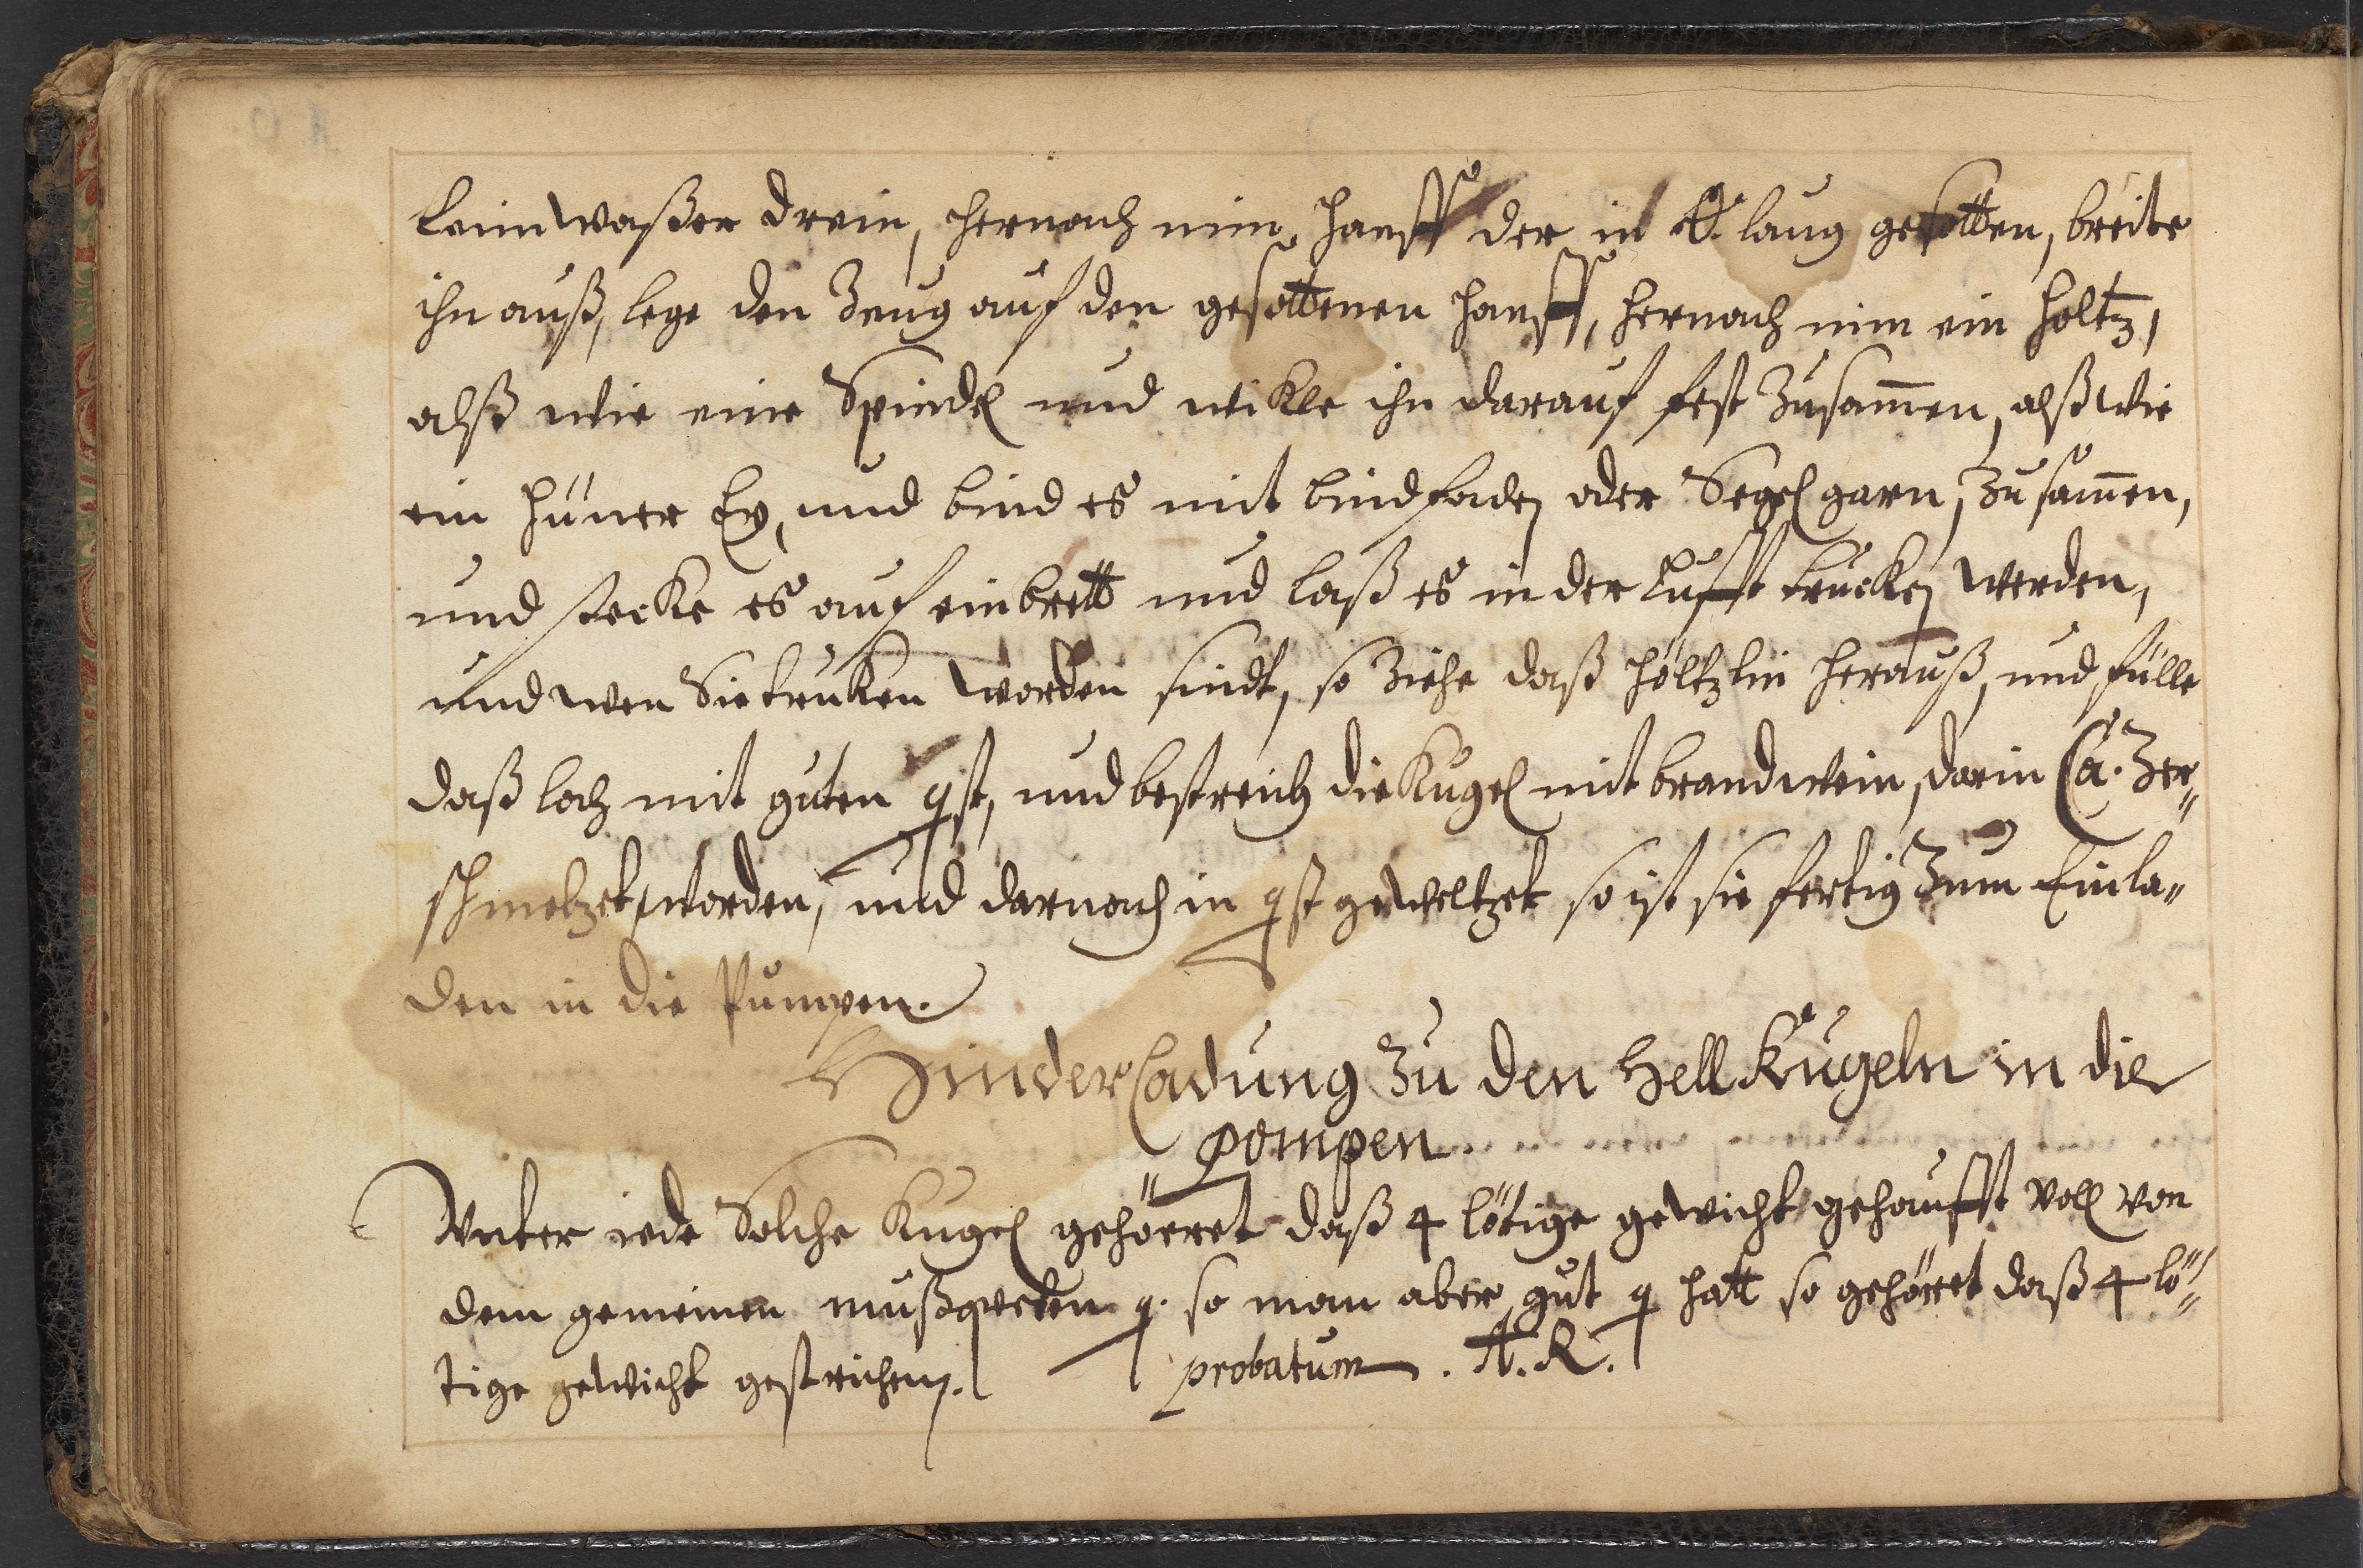 Leimwaßer drein, hernach nim hanff der in A. laug gesotten, breite
ihn auß, lege den Zeug auf den gesottenen hanff, hernach nim ein holtz,
alß wie eine Spindel und wikle ihn darauf fest Zusam̄en, alß wie
ein hüner Ey, und bind es mit bindfaden oder Segel garn, Zusam̄en,
und stecke es auf ein brett und laß es in der Lufft trucken werden,
und wen Sie trucken worden sindt, so Ziehe daß höltzlin herauß, und fülle
daß loch mit guten qst, und bestreich die Kugel mit brandwein, darin Ca. Zer„
schmeltzet worden, und darnach in qst geweltzet so ist sie fertig Zum Einla„
den in die Pumpen.
Hinder Ladung Zu den Hell Kugeln in die
„ pompen.
Unter iede Solche Kugel gehörret daß 4 lötige gewicht gehaufft voll von
dem gemeinen mußqveten q. so man aber gut q hatt so gehörret daß 4 lö„
tige gewicht gestrichen.
probatum. A. R.